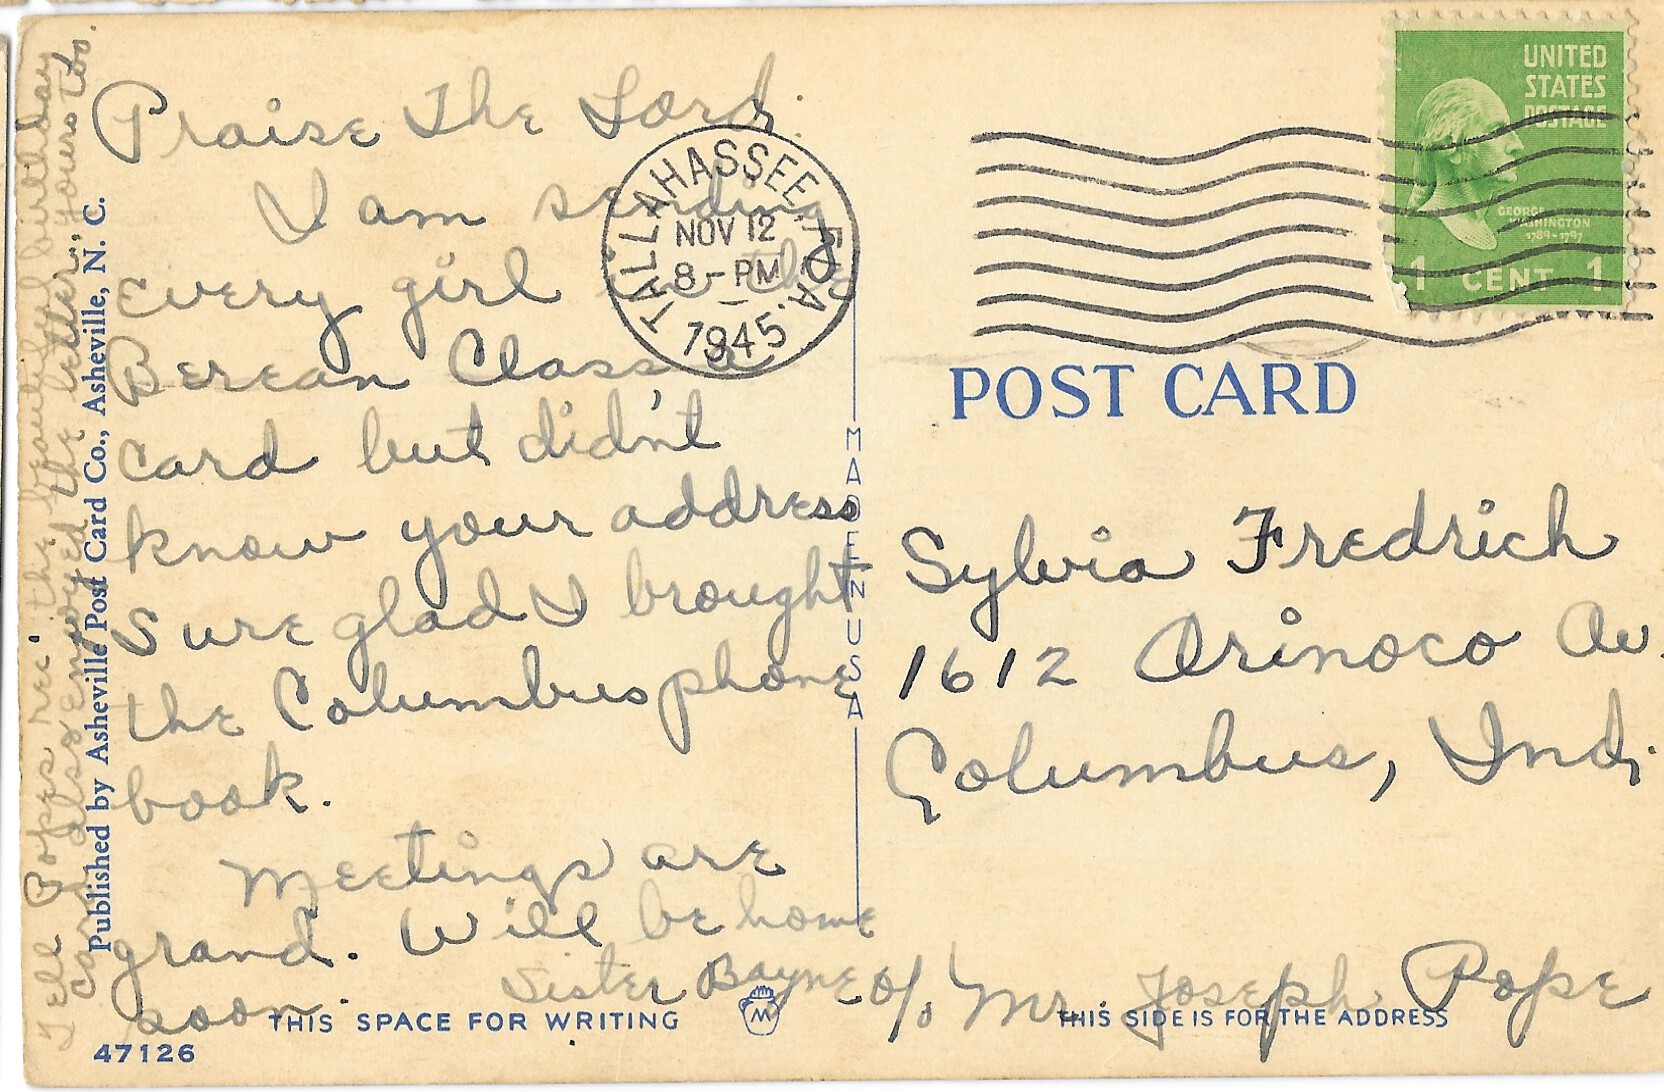 Praise The Lord.
I am sending
Every girl in the
Berean Class a
card but didn't
know your address
Sure glad I brought
the Columbus phone
book.
Meetings are
grand. Will be home
soon.
Sister Bayne
Tell Popes rec' the beautiful birthday
card also enjoyed the letter, yours too.
Published by Asheville Post Card Co., Asheville, N. C.
THIS SPACE FOR WRITING
47126
M
MADE IN USA
TALLAHASSEE, FLA.
NOV 12
8 - PM
1945
UNITED
STATES
POSTAGE
GEORGE
WASHINGTON
1789-1797
1 CENT 1
POST CARD
Sylvia Fredrich
1612 Orinoco Av.
Columbus, Ind.
c/o Mr. Joseph Pope
THIS SIDE IS FOR THE ADDRESS